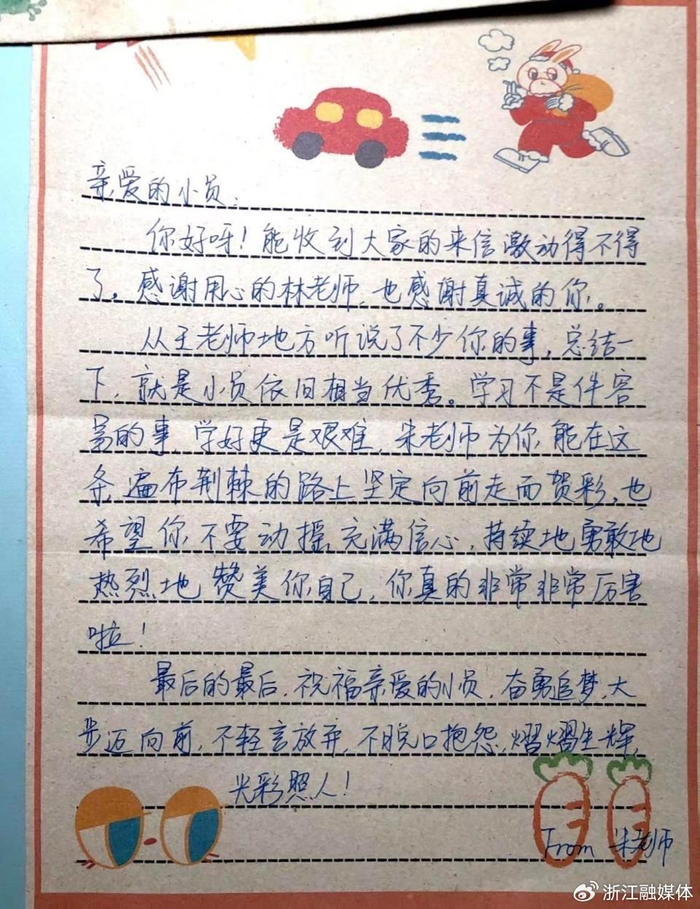 亲爱的小员:
你好呀!能收到大家的来信激动得不得
了。感谢用心的林老师,也感谢真诚的你。
从王老师地方听说了不少你的事,总结一
下,就是小员依旧相当优秀。学习不是件容
易的事,学好更是艰难,朱老师为你能在这
条遍布荆棘的路上坚定向前走而贺彩,也
希望你不要动摇,充满信心,持续地勇敢地
热烈地赞美你自己,你真的非常非常厉害
啦!
最后的最后,祝福亲爱的小员,奋勇追梦,大
步迈向前,不轻言放弃,不脱口抱怨,熠熠生辉,
光彩照人!
From 朱老师
@浙江融媒体